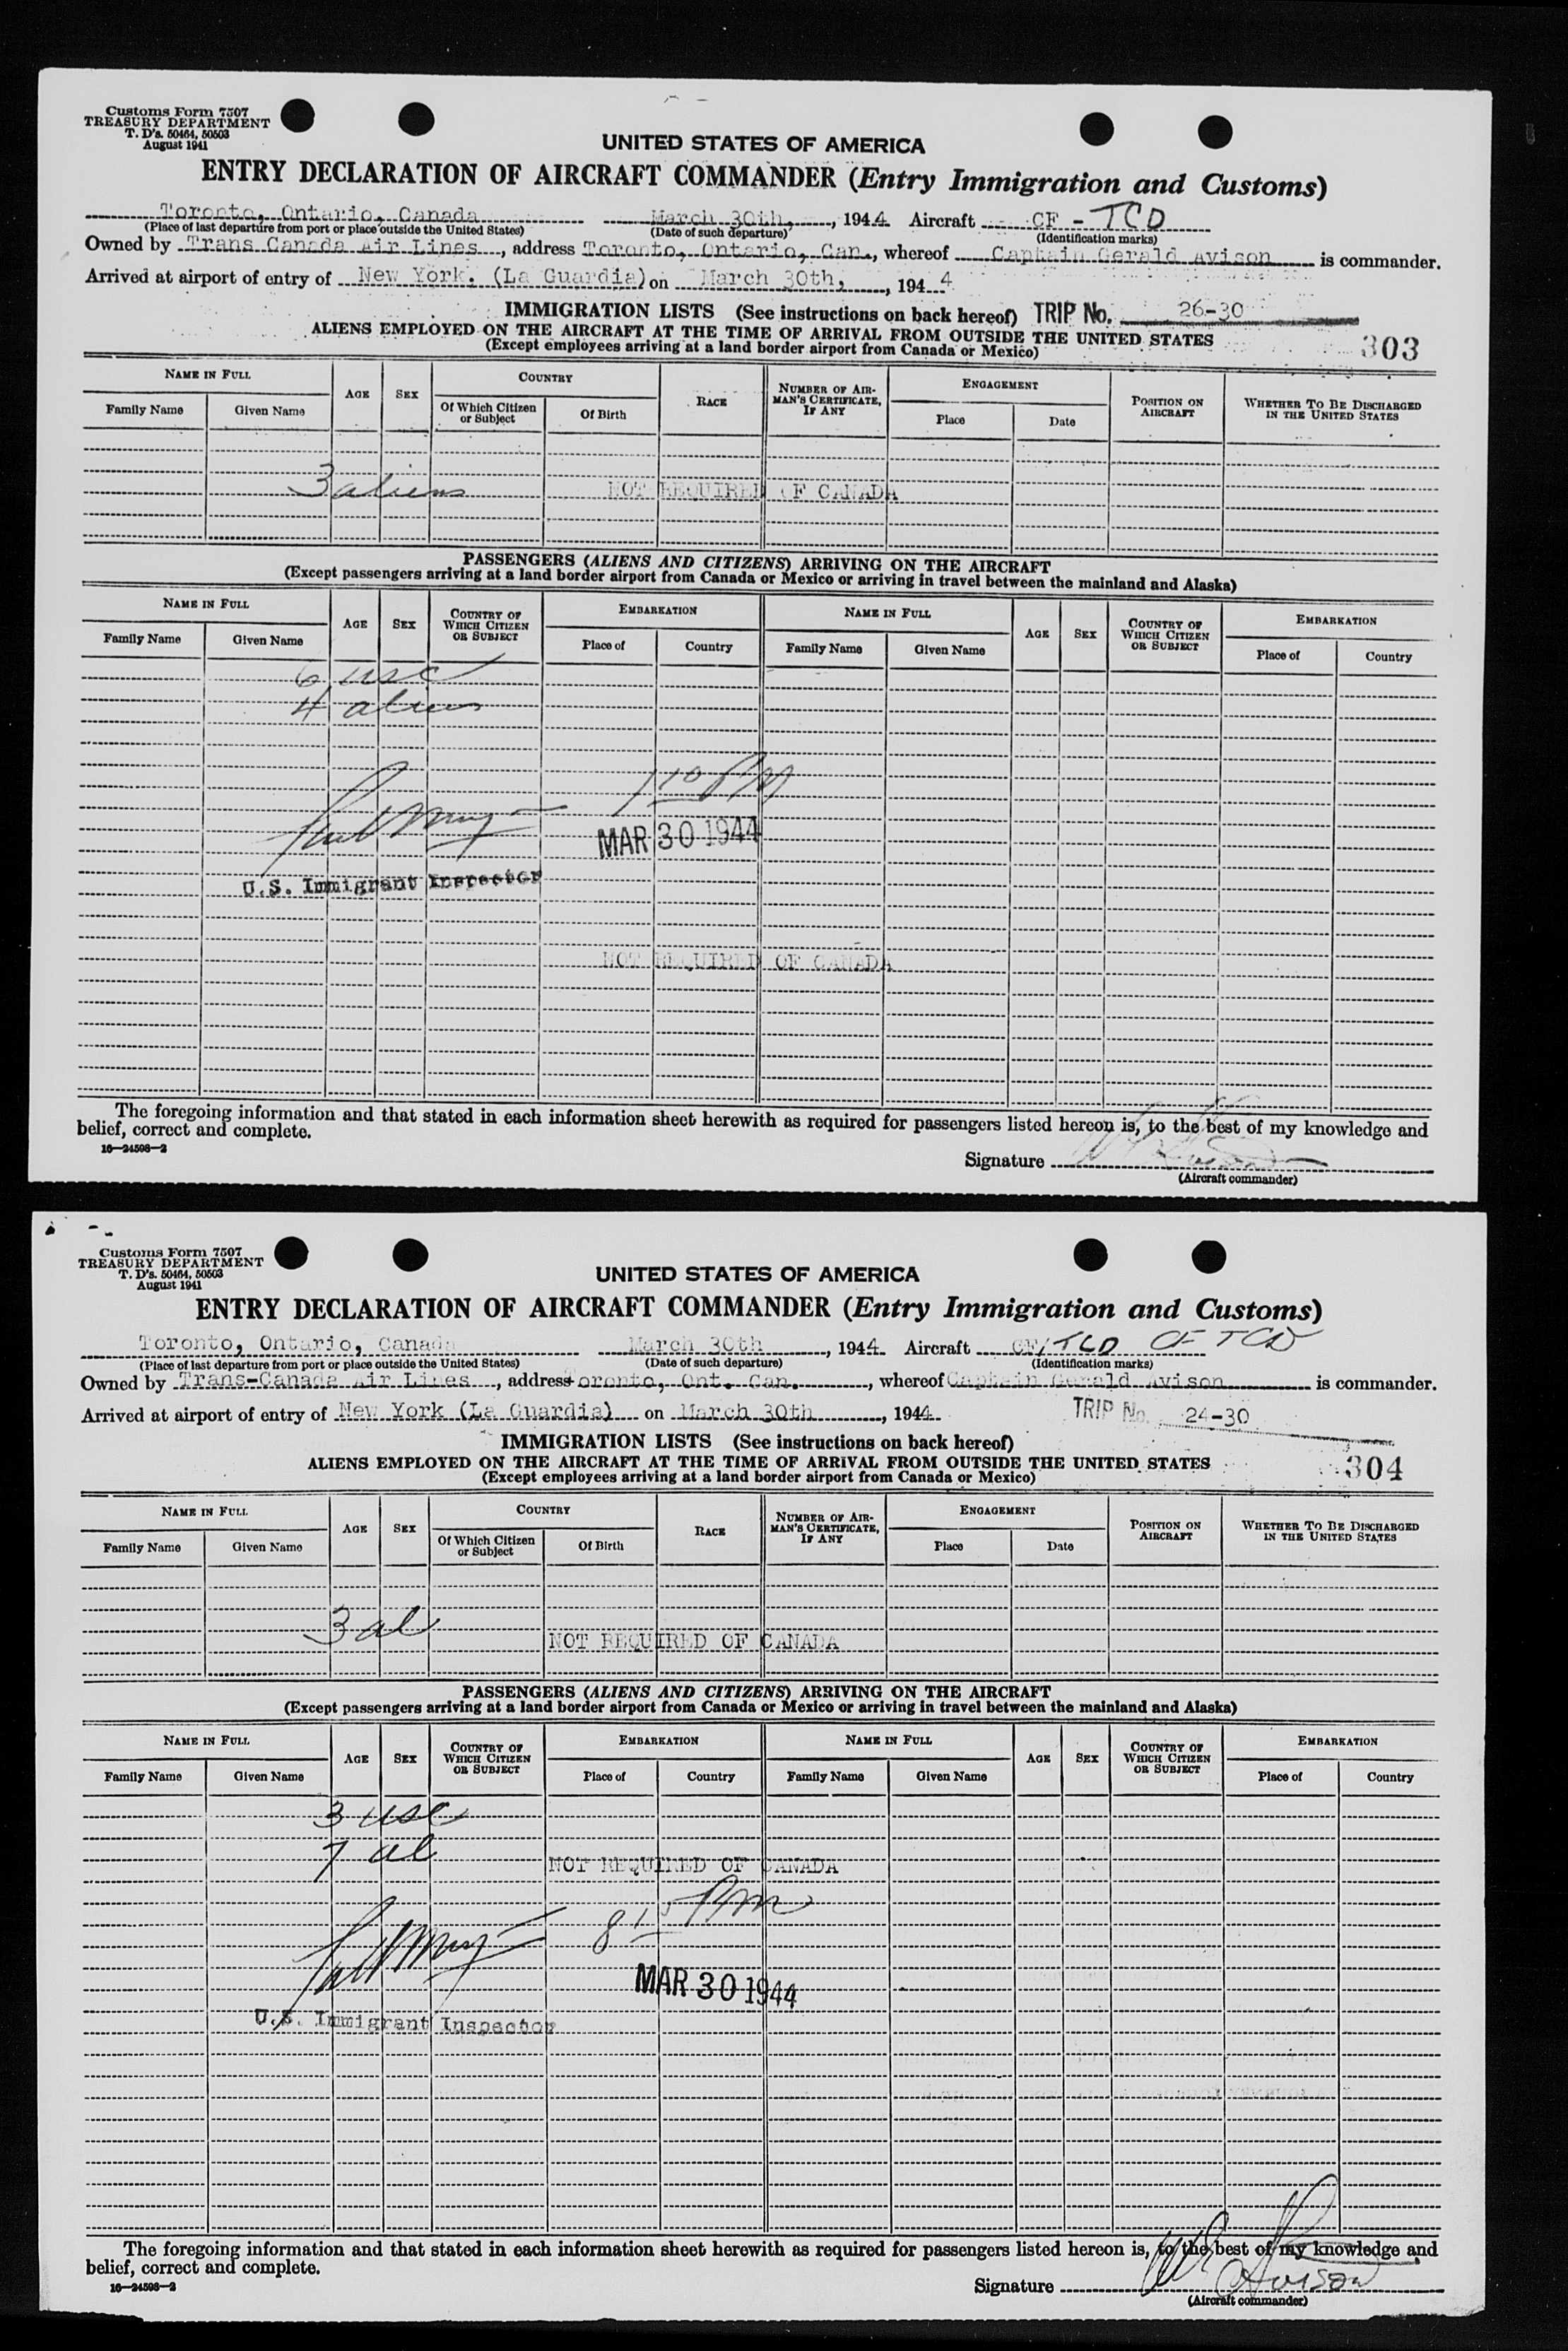 Customs Form 7507
TREASURY DEPARTMENT
T. D's. 50464, 50503
August 1941
UNITED STATES OF AMERICA
ENTRY DECLARATION OF AIRCRAFT COMMANDER (Entry Immigration and Customs)
Toronto, Ontario, Canada March 30th, 1944 Aircraft CF - TCD
(Place of last departure from port or place outside the United States) (Date of such departure) (Identification marks)
Owned by Trans Canada Air Lines, address Toronto, Ontario, Can., whereof Captain Gerald Avison is commander.
Arrived at airport of entry of New York. (La Guardia) on March 30th, 1944
IMMIGRATION LISTS (See instructions on back hereof) TRIP No. 26-30
ALIENS EMPLOYED ON THE AIRCRAFT AT THE TIME OF ARRIVAL FROM OUTSIDE THE UNITED STATES
(Except employees arriving at a land border airport from Canada or Mexico) 303
NAME IN FULL AGE SEX COUNTRY RACE NUMBER OF AIRMAN'S CERTIFICATE, IF ANY ENGAGEMENT POSITION ON AIRCRAFT WHETHER TO BE DISCHARGED IN THE UNITED STATES
Family Name Given Name Of Which Citizen or Subject Of Birth Place Date
3 aliens NOT REQUIRED OF CANADA
PASSENGERS (ALIENS AND CITIZENS) ARRIVING ON THE AIRCRAFT
(Except passengers arriving at a land border airport from Canada or Mexico or arriving in travel between the mainland and Alaska)
NAME IN FULL AGE SEX COUNTRY OF WHICH CITIZEN OR SUBJECT EMBARKATION NAME IN FULL AGE SEX COUNTRY OF WHICH CITIZEN OR SUBJECT EMBARKATION
Family Name Given Name Place of Country Family Name Given Name Place of Country
6 usc
4 aliens
1 10 PM
MAR 30 1944
U.S. Immigrant Inspector
NOT REQUIRED OF CANADA
The foregoing information and that stated in each information sheet herewith as required for passengers listed hereon is, to the best of my knowledge and
belief, correct and complete.
16—24598—2
Signature
(Aircraft commander)
Customs Form 7507
TREASURY DEPARTMENT
T. D's. 50464, 50503
August 1941
UNITED STATES OF AMERICA
ENTRY DECLARATION OF AIRCRAFT COMMANDER (Entry Immigration and Customs)
Toronto, Ontario, Canada March 30th, 1944 Aircraft CF/TCD CF TCD
(Place of last departure from port or place outside the United States) (Date of such departure) (Identification marks)
Owned by Trans-Canada Air Lines, address Toronto, Ont. Can., whereof Captain Gerald Avison is commander.
Arrived at airport of entry of New York (La Guardia) on March 30th, 1944. TRIP No. 24-30
IMMIGRATION LISTS (See instructions on back hereof)
ALIENS EMPLOYED ON THE AIRCRAFT AT THE TIME OF ARRIVAL FROM OUTSIDE THE UNITED STATES
(Except employees arriving at a land border airport from Canada or Mexico) 304
NAME IN FULL AGE SEX COUNTRY RACE NUMBER OF AIRMAN'S CERTIFICATE, IF ANY ENGAGEMENT POSITION ON AIRCRAFT WHETHER TO BE DISCHARGED IN THE UNITED STATES
Family Name Given Name Of Which Citizen or Subject Of Birth Place Date
3 al NOT REQUIRED OF CANADA
PASSENGERS (ALIENS AND CITIZENS) ARRIVING ON THE AIRCRAFT
(Except passengers arriving at a land border airport from Canada or Mexico or arriving in travel between the mainland and Alaska)
NAME IN FULL AGE SEX COUNTRY OF WHICH CITIZEN OR SUBJECT EMBARKATION NAME IN FULL AGE SEX COUNTRY OF WHICH CITIZEN OR SUBJECT EMBARKATION
Family Name Given Name Place of Country Family Name Given Name Place of Country
3 usc
7 al NOT REQUIRED OF CANADA
8 15 PM
MAR 30 1944
U.S. Immigrant Inspector
The foregoing information and that stated in each information sheet herewith as required for passengers listed hereon is, to the best of my knowledge and
belief, correct and complete.
16—24598—2
Signature Avison
(Aircraft commander)